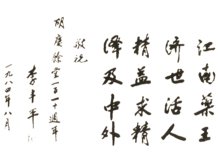 江南药王
济世活人
精益求精
泽及中外
敬祝
胡庆馀堂一一一週年
李丰平
一九八四年八月